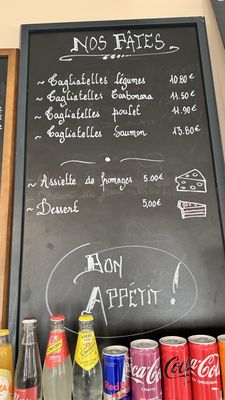 NOS PÂTES
~ Tagliatelles légumes 10.80€
~ Tagliatelles Carbonara 11.50€
~ Tagliatelles poulet 11.90€
~ Tagliatelles Saumon 13.80€
~ Assiette de fromages 5.00€
~ Dessert 5,00€
BON
APPÉTIT !
Red Bull
Coca-Cola
Cherry
Coca-Cola
Coca-Cola